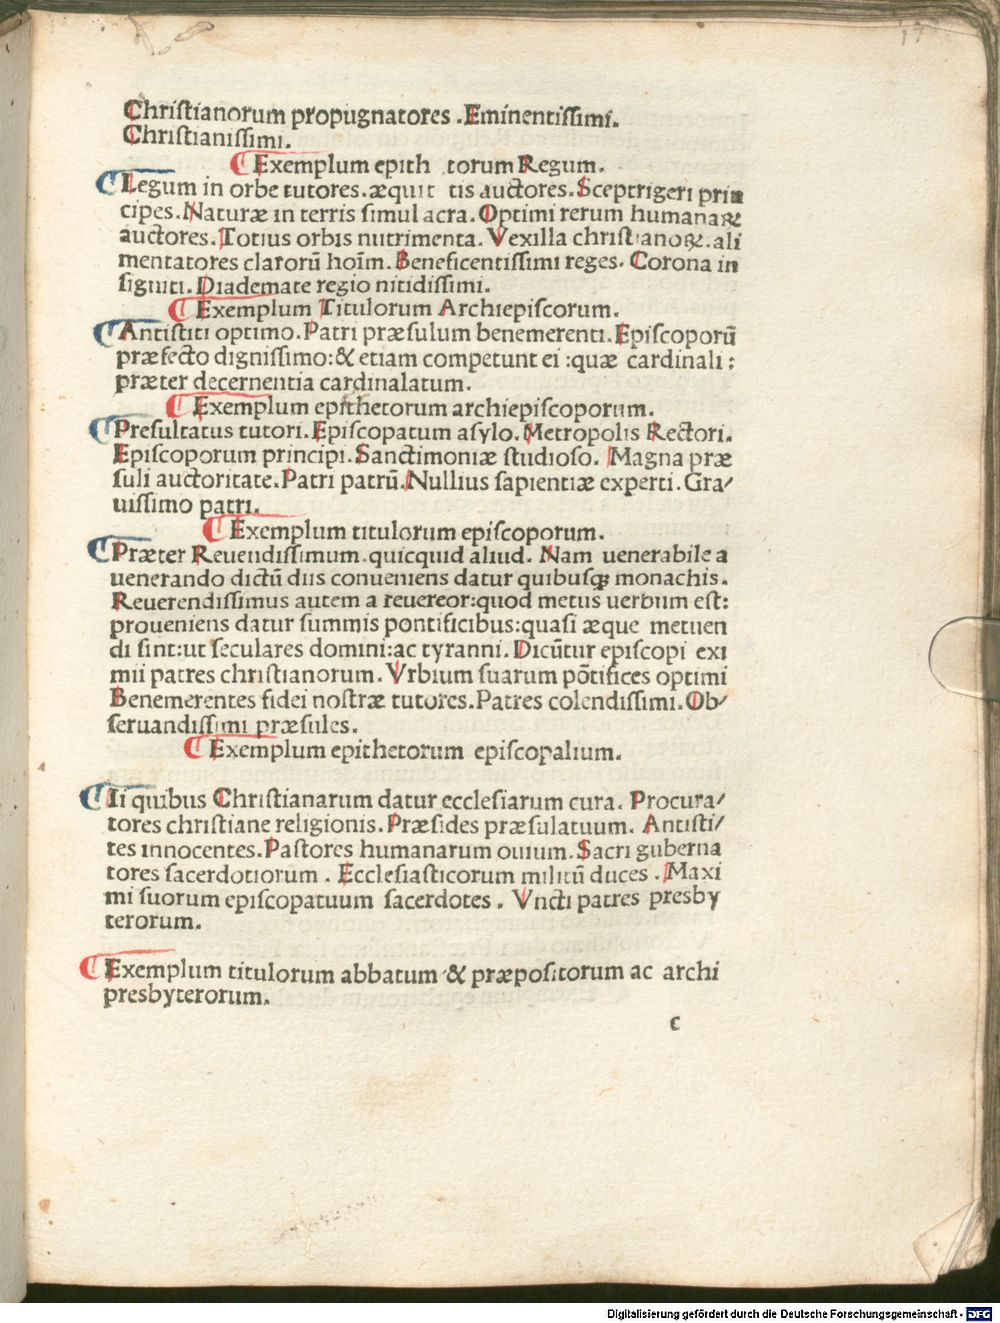 17
Chriſtianorum propugnatores .Eminentiſſimi.
Chriſtianiſſimi.
¶ Exemplum epith torum Regum.
¶ Legum in orbe tutores.æquit tis auctores.Sceptrigeri prin
cipes.Naturæ in terris ſimulacra.Optimi rerum humanaꝝ
auctores.Totius orbis nutrimenta.Vexilla chriſtianoꝝ.ali
mentatores clarorū hoīm.Beneficentiſſimi reges.Corona in
ſigniti.Diademate regio nitidiſſimi.
¶ Exemplum Titulorum Archiepiſcorum.
¶ Antiſtiti optimo.Patri præſulum benemerenti.Epiſcoporū
præfecto digniſſimo:& etiam competunt ei :quæ cardinali:
præter decernentia cardinalatum.
¶ Exemplum epithetorum archiepiſcoporum.
¶ Preſultatus tutori.Epiſcopatum aſylo.Metropolis Rectori.
Epiſcoporum principi.Sanctimoniæ ſtudioſo. Magna præ
ſuli auctoritate.Patri patrū.Nullius ſapientiæ experti.Gra/
uiſſimo patri.
¶ Exemplum titulorum epiſcoporum.
¶ Præter Reuendiſſimum.quicquid aliud. Nam uenerabile a
uenerando dictū diis conueniens datur quibuſqꝫ monachis.
Reuerendiſſimus autem a reuereor:quod metus uerbum eſt:
proueniens datur ſummis pontificibus:quaſi æque metuen
di ſint:ut ſeculares domini:ac tyranni.Dicūtur epiſcopi exi
mii patres chriſtianorum.Vrbium ſuarum pōtifices optimi
Benemerentes fidei noſtræ tutores.Patres colendiſſimi.Ob/
ſeruandiſſimi præſules.
¶ Exemplum epithetorum epiſcopalium.
¶ Ii quibus Chriſtianarum datur eccleſiarum cura. Procura/
tores chriſtiane religionis.Præſides præſulatuum. Antiſti/
tes innocentes.Paſtores humanarum ouium.Sacri guberna
tores ſacerdotiorum . Eccleſiaſticorum militū duces . Maxi
mi ſuorum epiſcopatuum ſacerdotes . Vncti patres presby
terorum.
¶ Exemplum titulorum abbatum & præpoſitorum ac archi
presbyterorum.
c
Digitalisierung gefördert durch die Deutsche Forschungsgemeinschaft - DFG